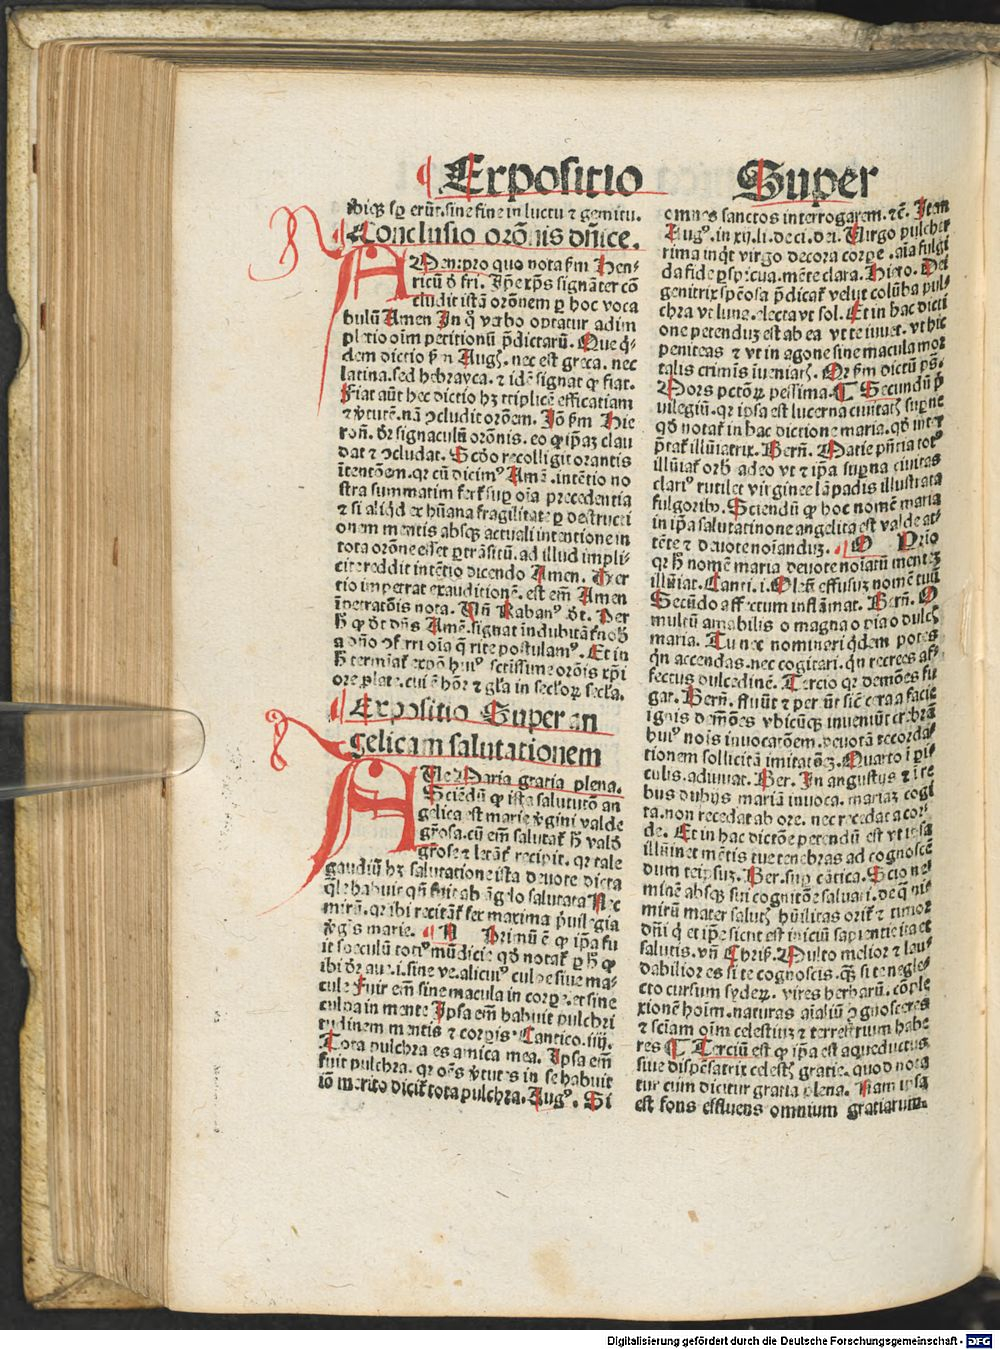 Expositio Super
ibicꝫ sꝑ erūt.sine fine in luctu ⁊ gemitu.
Conclusio orōnis dn̄ice.
AMen.pro quo nota s̄m Hen-
ricū d̓ fri. Ip̄e xp̄s signāter cō
cludit istā orōnem ꝑ hoc voca
bulū Amen In q̄ verbo optatur adim
pletio oīm petitionū p̄dictarū. Que q̄-
dem dictio s̄m Augꝰ. nec est greca. nec
latina.sed hebrayca.⁊ idē signat ꝙ fiat.
Fiat aūt hec dictio hꝫ triplicē efficatiam
⁊ v̓tutē.nā ↄcludit orōem. Iō s̄m Hie
ron̄. dr̄ signaculū orōnis. eo ꝙ ip̄aꝫ clau
dat ⁊ ↄcludat. Scd̄o recolligit orantis
ītentōem.qꝛ cū dicimꝰ Amē.intētio no
stra summatim fert̄ sup̄ oīa precedentia
⁊ si aliqd̓ ex hūana fragilitate ꝑ destructi
onem mentis absqꝫ actuali intentione in
tota orōne eſſet ꝑtrāsitū. ad illud impli-
cite reddit intētio dicendo Amen. Ter
tio impetrat exauditionē. est em̄ Amen
īpetratōis nota. Vn̄ Rabanꝰ d̓t. Per
h̓ ꝙ d̓t dn̄s Amē.signat indubitāt̓ nob̓
a dn̄o ↄferri oīa q̄ rite postulamꝰ. Et in
h̓ termīat̓ expō huiꝰ sctissime orōis xp̄i
ore ꝓlate.cui ē hōr ⁊ gl̓a in seclo꜠ secl̓a.
Expositio Super an
gelicam salutationem
AUe Maria gratia plena.
Sciēdū ꝙ ista salutatō an
gelica est marie v̓gini valde
gr̄osa.cū em̄ salutat̓ h̓ vald̓
gr̄ose ⁊ letāt̓ recipit. qꝛ tale
gaudiū hꝫ salutatione ista deuote dicta
q̄le habuit qn̄ fuit ab āgelo salutata Nec
mirū.qꝛ ibi recitāt̓ sex maxima p̄uilegia
v̓gīs marie. Primū ē ꝙ ip̄a fu
it speculū totiꝰ mūdicie qd̓ notat̓ ꝑ h̓ ꝙ
ibi dr̄ aue.i.sine ve.alicuiꝰ culpe siue ma-
cule Fuit em̄ sine macula in corpe.et sine
culpa in mente Ipsa em̄ habuit pulchri
tudinem mentis ⁊ corpis. Cantico.iiij.
Tota pulchra es amica mea. Ipsa em̄
fuit pulchra. qꝛ oēs v̓tutes in se habuit
iō merito dicit̓ tota pulchra.Augꝰ. Si
omnes sanctos interrogarem.⁊c̄. Item
Augꝰ.in xij.li.de ci.dei. Uirgo pulcher
rima inqt̓ virgo decora corpe.aīa fulgi
da fide ꝑspicua.mēte clara. Hiero. Dei
genitrix spēosa p̄dicat̓ velut colūba pul-
chra vt luna.electa vt sol. Et in hac dicti
one petenduꝫ est ab ea vt te iuuet.vt hic
peniteas ⁊ vt in agone sine macula mor
talis crimīs īueniat꜠. Or̄ s̄m dictū ps̄.
Mors pctō꜠ pessima. Secundū p̄
uilegiū.qꝛ ipsa est lucerna ciuitat꜠ suꝑne
qd̓ notat̓ in hac dictione maria.qd̓ inter
p̄tat̓ illūiatrix. Bern̄. Marie pn̄tia totꝰ
illūiat̓ orb̓ adeo vt ⁊ ip̄a suꝑna ciuitas
clariꝰ rutilet virginee lāpadis illustrata
fulgoribꝰ. Sciendū ꝙ hoc nomē maria
in ip̄a salutatinone angelica est valde at-
tēte ⁊ deuote noīanduꝫ. Prīo
qꝛ h̓ nomē maria deuote noīatū menteꝫ
illūiat. Canti.i. Oleū effusuꝫ nomē tuū
Secūdo affectum inflāmat. Bern̄. O
multū amabilis o magna o pia o dulc꜠
maria. Tu nec nominari q̄dem potes
qn̄ accendas.nec cogitari.qn̄ recrees af-
fectus dulcedinē. Tercio qꝛ demōes fu
gat. Bern̄. fluūt ⁊ per̄ūt sic̄ cera a facie
ignis demōes vbicūqꝫ inueniūt crebrā
huiꝰ noīs inuocatōem.deuotā recorda-
tionem sollicitā imitatōeꝫ. Quarto ī peri
culis.adiuuat. Ber. In angustijs ⁊ ī re
bus dubijs mariā inuoca. mariaꝫ cogi
ta.non recedat ab ore. nec recedat a cor-
de. Et in hac dictōe petendū est vt ipsa
illūinet mētis tue tenebras ad cognoscē
dum teipsuꝫ. Ber.sup̄ cātica. Scio ne-
minē absqꝫ sui cognitōe saluari.de q̄ ni-
mirū mater salut꜠ hūilitas orit̓ ⁊ timor
dn̄i q̄ et ip̄e sicut est iniciū sapientie ita et
salutis.vn̄ Chris̓. Multo melior ⁊ lau-
dabilior es si te cognoscis. qꝫ si te negle-
cto cursum syde꜠. vires herbarū. cōple
xionē hoīm. naturas aīaliū ꝓgnosceres
⁊ sciam oīm celestiuꝫ ⁊ terrestrium habe
res Terciū est ꝙ ip̄a est aqueductus
siue dispēsatrix celest꜠ gratie. quod nota
tur cum dicitur gratia plena. Nam ipsa
est fons effluens omnium gratiarum.
Digitalisierung gefördert durch die Deutsche Forschungsgemeinschaft - DFG